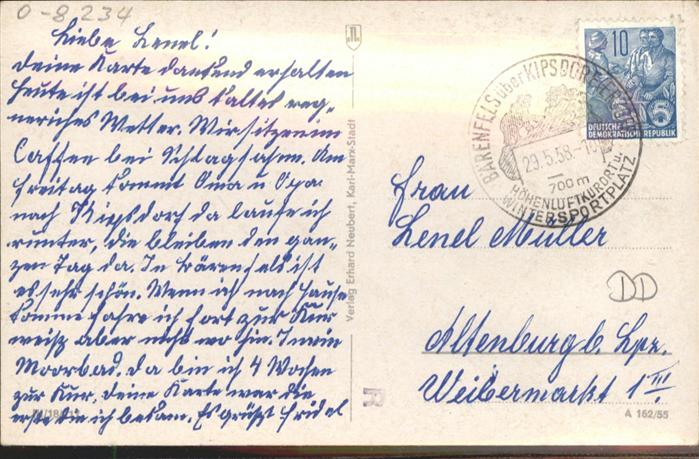 0-8234
Liebe Lenel!
Deine Karte dankend erhalten
heute ist bei uns kaltes reg-
nerisches Wetter. Wir sitzen im
Caffee bei Schlagsahne. Am
Freitag kommt Oma u Opa
nach Kipsdorf da laufe ich
runter, die bleiben den gan-
zen Tag da. In Bärenfels ist
es sehr schön. Wenn ich nach Hause
komme fahre ich fort zur Kur
weiß aber nicht wo hin. In ein
Moorbad. Da bin ich 4 Wochen
zur Kur. Deine Karte war die
erste die ich bekam. Es grüßt Friedel
Verlag Erhard Neubert, Karl-Marx-Stadt
10
5
DEUTSCHE
DEMOKRATISCHE REPUBLIK
BÄRENFELS über KIPSDORF
29.5.58
700 m
HÖHENLUFTKURORT u.
WINTERSPORTPLATZ
Frau
Lenel Müller
DD
Altenburg b. Lpz.
Weibermarkt 1 III
R
A 162/55